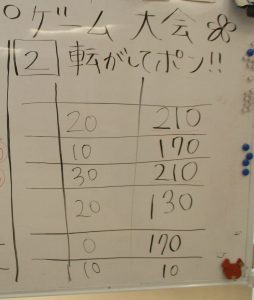 ゲーム 大会
2 転がしてポン!!
20 210
10 170
30 210
20 130
0 170
10 10